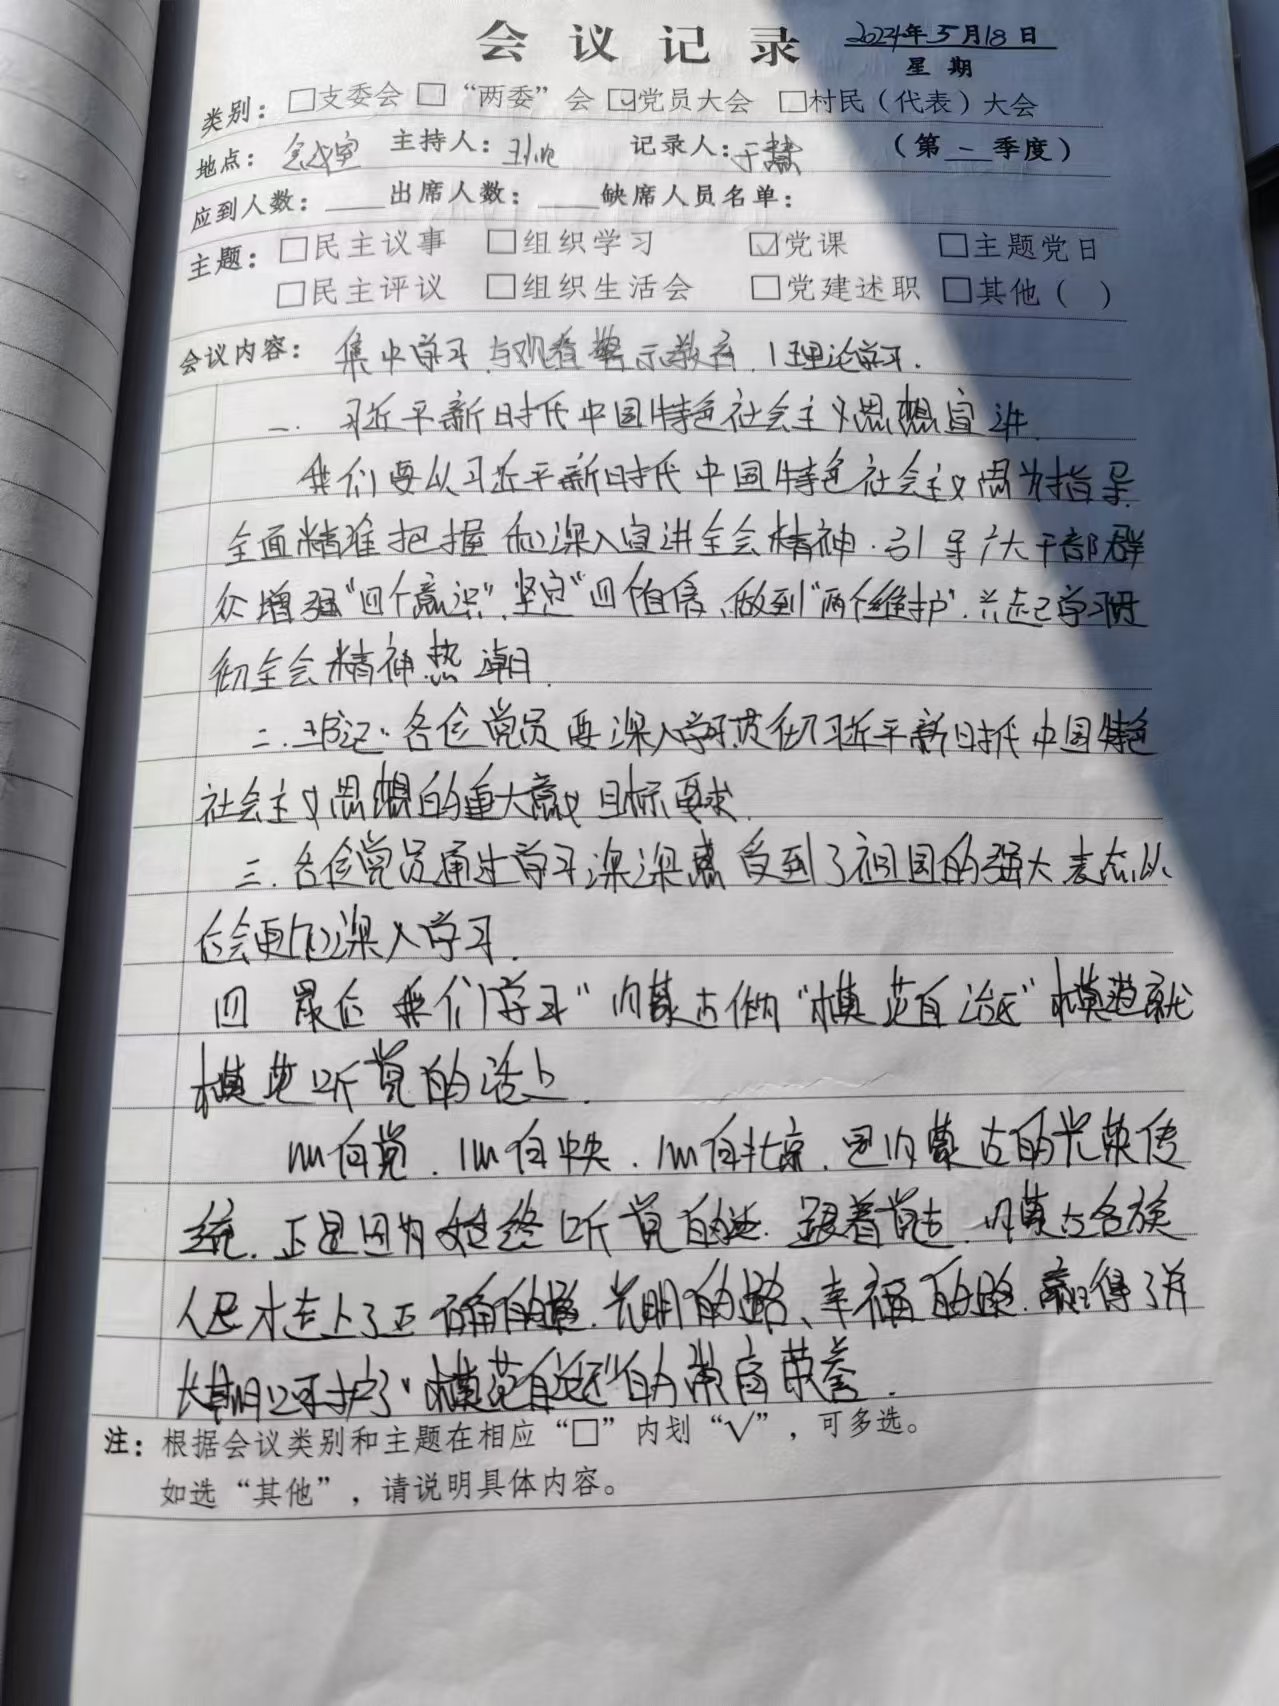 会议记录 2024年5月18日
星期
类别：□支委会 □“两委”会 ☑党员大会 □村民（代表）大会
地点：会议室 主持人： 记录人：于慧 （第一季度）
应到人数：____出席人数：____缺席人员名单：
主题：□民主议事 □组织学习 ☑党课 □主题党日
□民主评议 □组织生活会 □党建述职 □其他（ ）
会议内容：集中学习、与观看警示教育，1理论学习．
一．习近平新时代中国特色社会主义思想宣讲．
我们要以习近平新时代中国特色社会主义思为指导．
全面精准把握和深入宣讲全会精神．引导广大干部群
众增强“四个意识”，坚定“四个自信，做到“两个维护”．兴起学习贯
彻全会精神热潮．
二．书记：各位党员要深入学习贯彻习近平新时代中国特色
社会主义思想的重大意义目标要求．
三．各位党员通过学习深深感受到了祖国的强大表态以
后会更加深入学习．
四 最后我们学习“内蒙古何为“模范自治区”模范就
模范听党的话上．
心向党．心向中央．心向北京．是内蒙古的光荣传
统．正是因为始终听党的话．跟着党走．内蒙古各族
人民才走上了正确的道路．光明的路、幸福的路．赢得了并
长期守护了“模范自治区”的崇高荣誉．
注：根据会议类别和主题在相应“□”内划“√”，可多选。
如选“其他”，请说明具体内容。